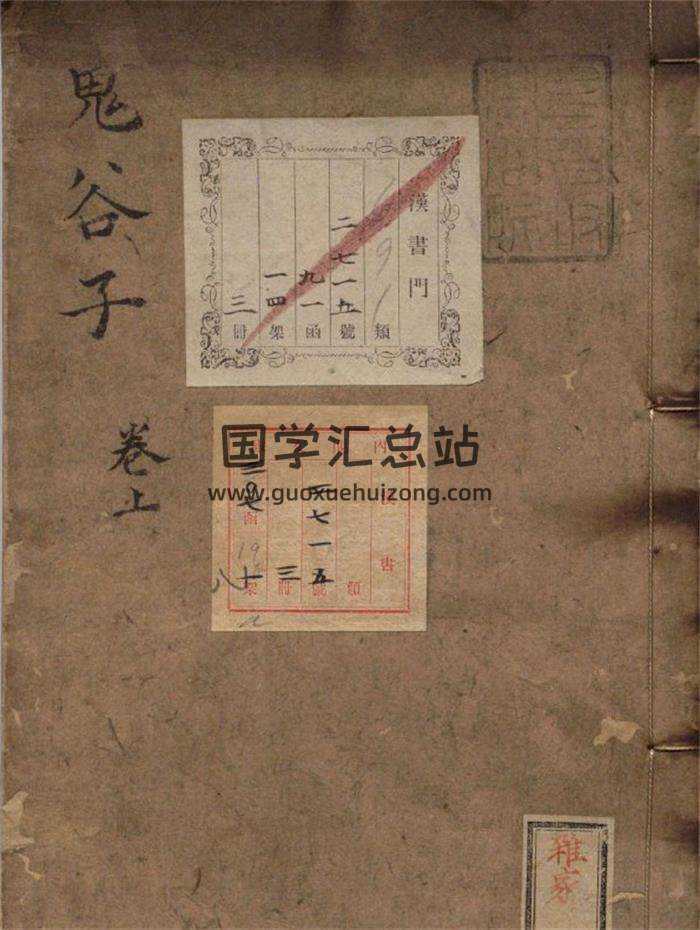 鬼谷子
卷上
漢書門
類
二七一五號
九一函
一四架
三冊
国学汇总站
www.guoxuehuizong.com
內
書
類
七一五號
三冊
函
架
雜家